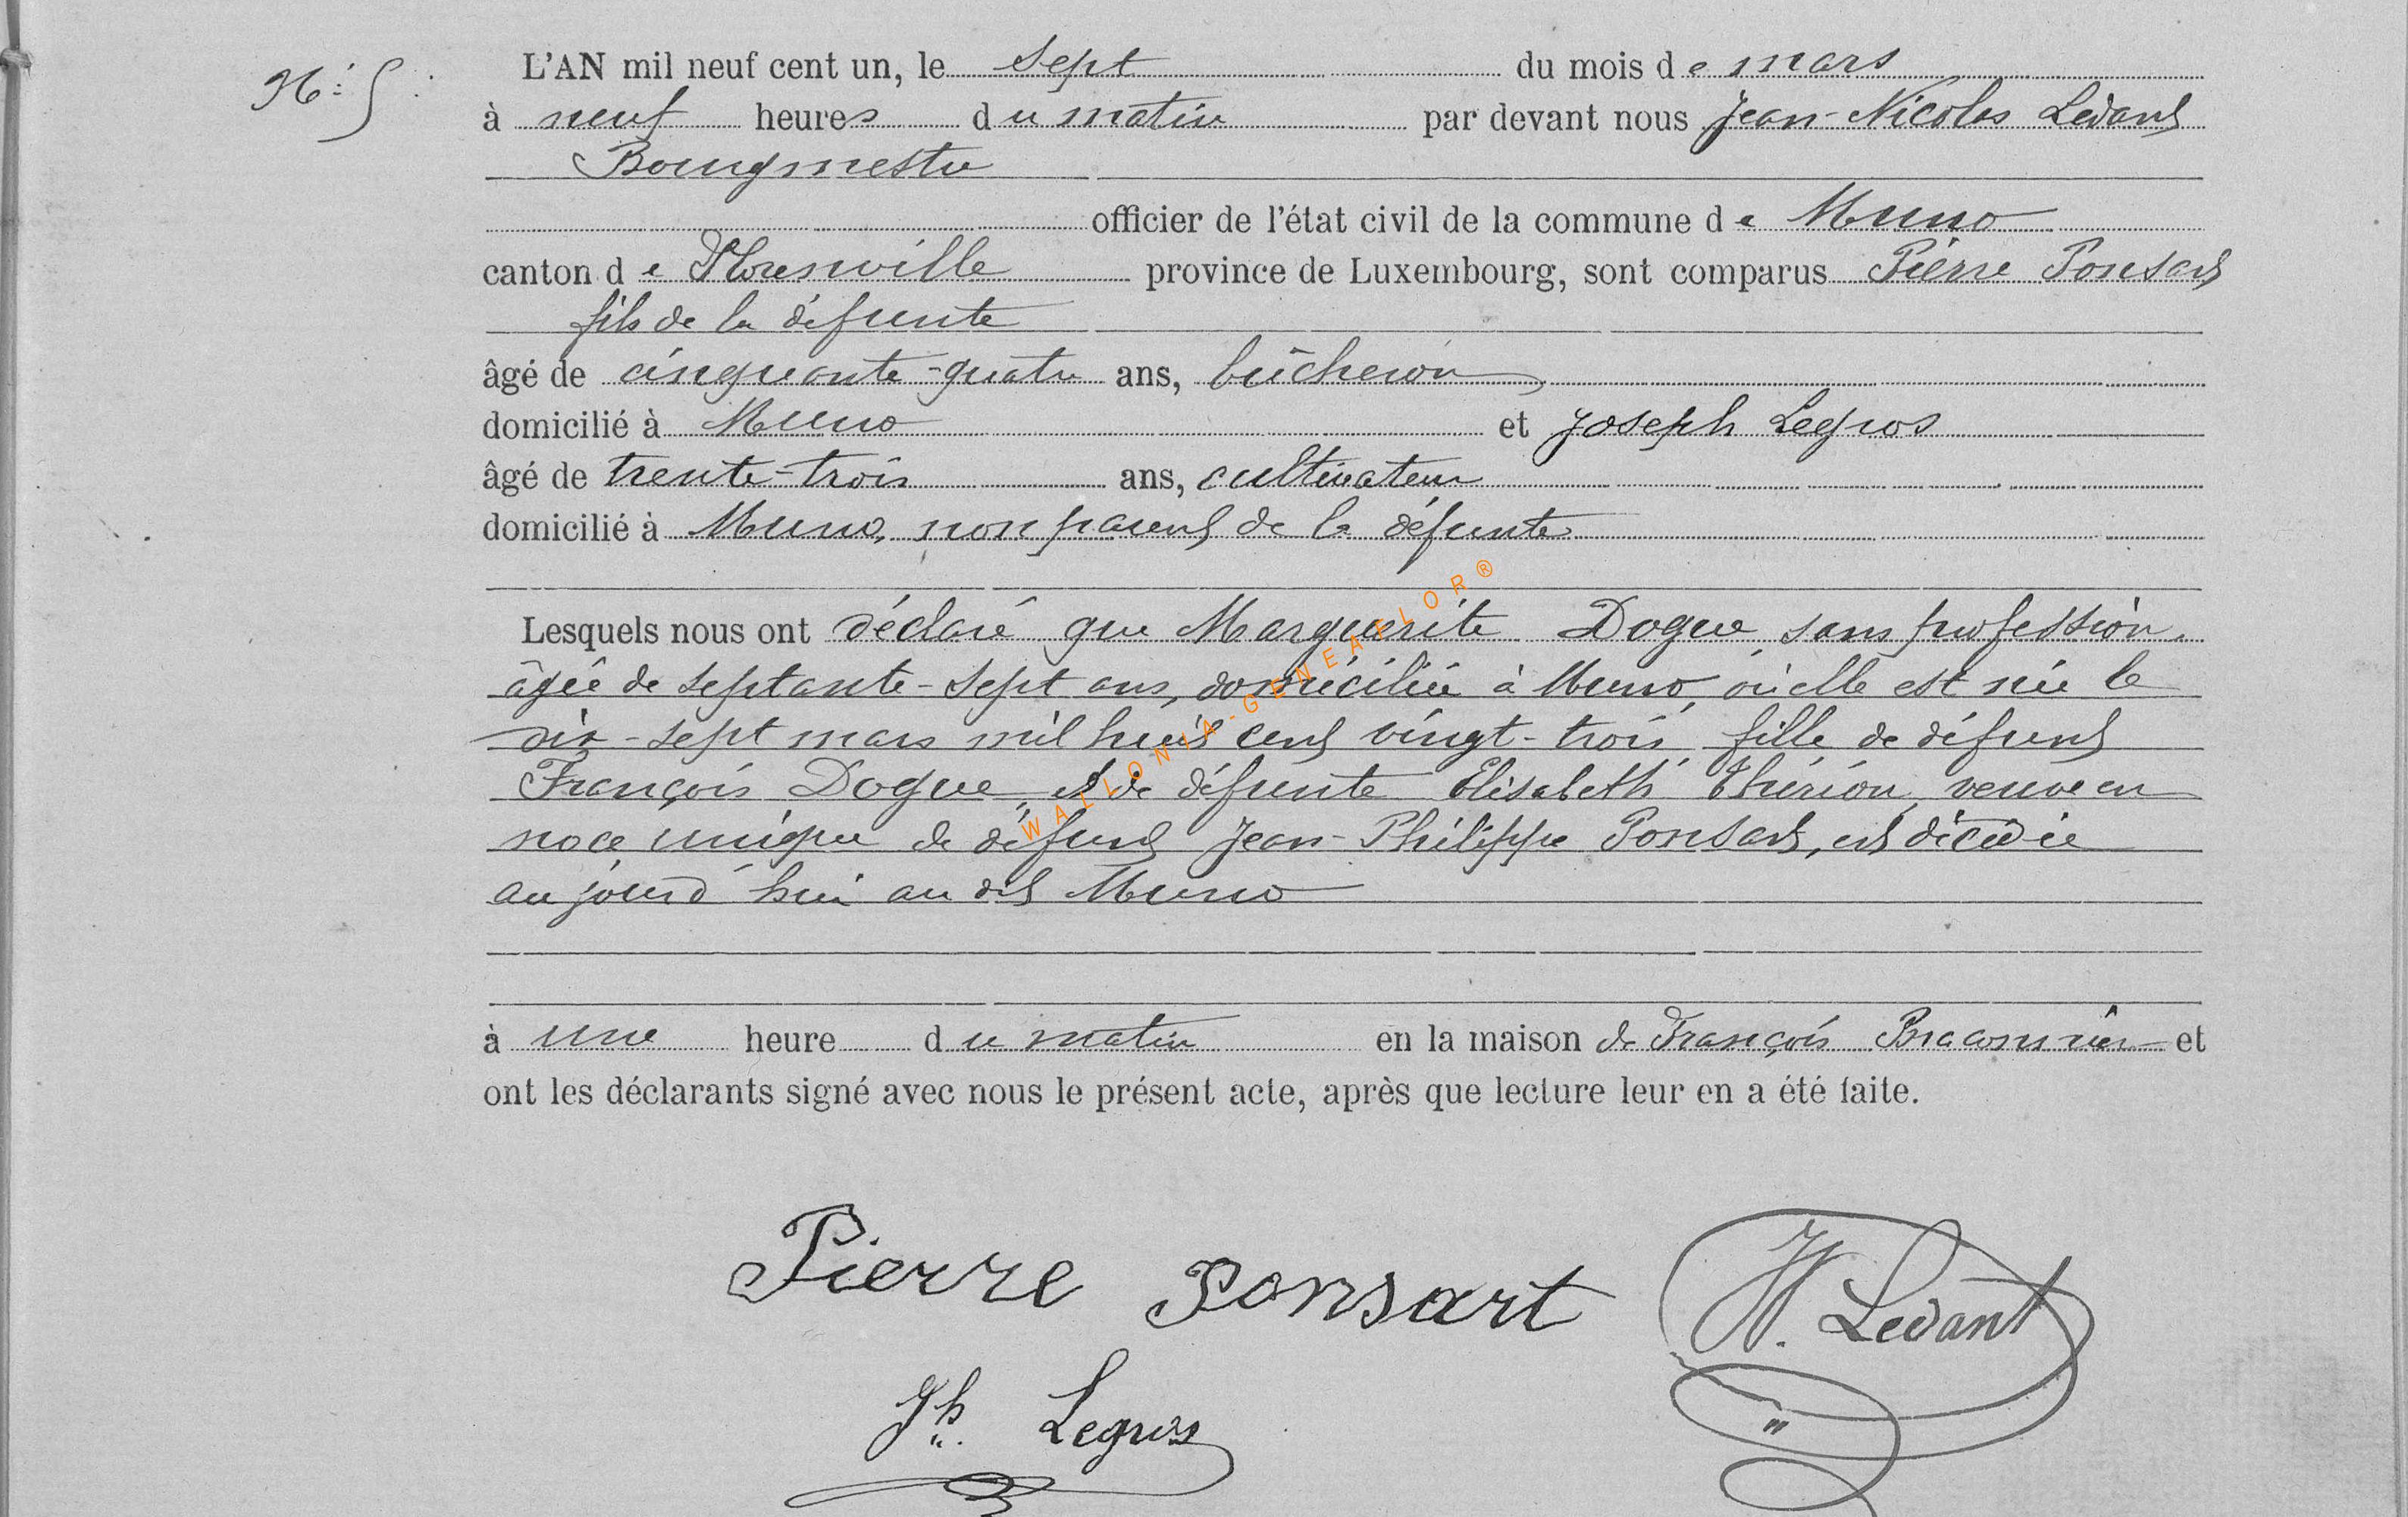 N°: 5.
L'AN mil neuf cent un, le sept du mois de mars
à neuf heures du matin par devant nous Jean-Nicolas Ledant
Bourgmestre
officier de l'état civil de la commune de Muno
canton de Florenville province de Luxembourg, sont comparus Pierre Ponsart
fils de la défunte
âgé de cinquante-quatre ans, bûcheron
domicilié à Muno et Joseph Legros
âgé de trente-trois ans, cultivateur
domicilié à Muno, non parent de la défunte
Lesquels nous ont déclaré que Marguerite Dogue, sans profession,
âgée de septante-sept ans, domiciliée à Muno, où elle est née le
dix-sept mars mil huit cent vingt-trois, fille de défunt
François Dogue, et de défunte Elisabeth Thérion, veuve en
noce unique de défunt Jean-Philippe Ponsart, est décédée
aujourd'hui au dit Muno
à une heure du matin en la maison de François Braconnier et
ont les déclarants signé avec nous le présent acte, après que lecture leur en a été faite.
Pierre Ponsart
N. Ledant
Jh. Legros
WALLONIA-GENEAFLOR®